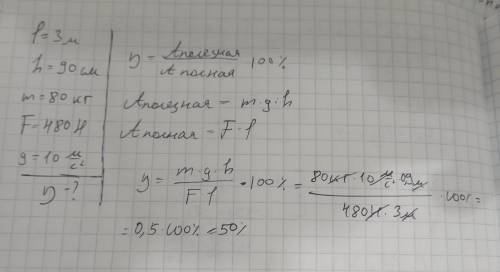 l=3м
h=90 см
m=80 кг
F=480 Н
g=10 м/с²
η-?
η = Aполезная / A полная · 100%
Aполезная = m·g·h
Aполная = F·l
η = m·g·h / F l · 100% = 80кг·10 м/с² 0,9м / 480Н·3м ·100% =
= 0,5·100% = 50%